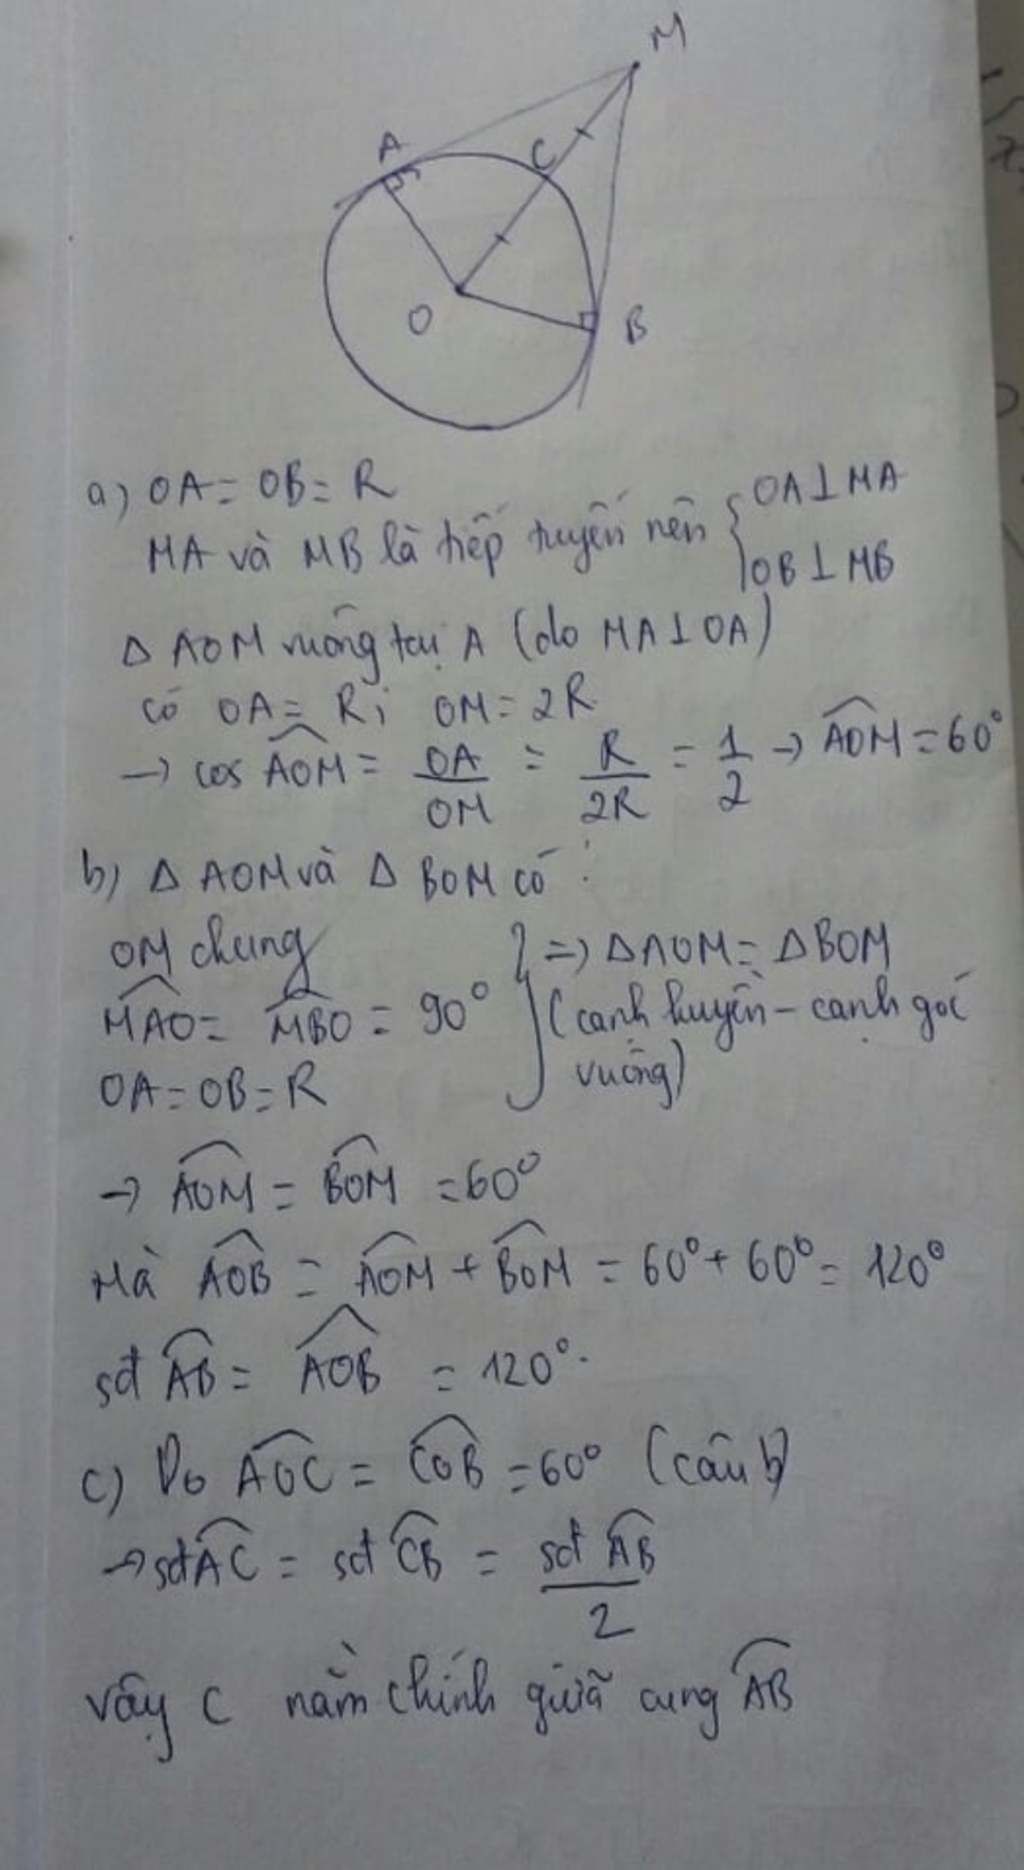 M
A
C
O
B
a) OA = OB = R
MA và MB là tiếp tuyến nên { OA ⊥ MA
OB ⊥ MB
Δ AOM vuông tại A (do MA ⊥ OA)
có OA = R; OM = 2R
→ cos \widehat{AOM} = OA/OM = R/2R = 1/2 → \widehat{AOM} = 60°
b) Δ AOM và Δ BOM có :
OM chung } => Δ AOM = Δ BOM
\widehat{MAO} = \widehat{MBO} = 90° (cạnh huyền - cạnh góc
OA = OB = R vuông)
→ \widehat{AOM} = \widehat{BOM} = 60°
Mà \widehat{AOB} = \widehat{AOM} + \widehat{BOM} = 60° + 60° = 120°
sđ \widehat{AB} = \widehat{AOB} = 120°.
c) Do \widehat{AOC} = \widehat{COB} = 60° (câu b)
→ sđ \widehat{AC} = sđ \widehat{CB} = sđ \widehat{AB}/2
vậy C nằm chính giữa cung \widehat{AB}